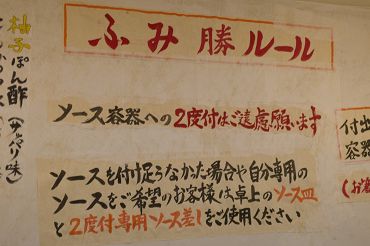 ふみ勝ルール
ソース容器への2度付はご遠慮願います
ソースを付け足りなかった場合や自分専用の
ソースをご希望のお客様は卓上のソース皿
と2度付専用ソース差しをご使用ください
柚子ぽん酢
付出
容器